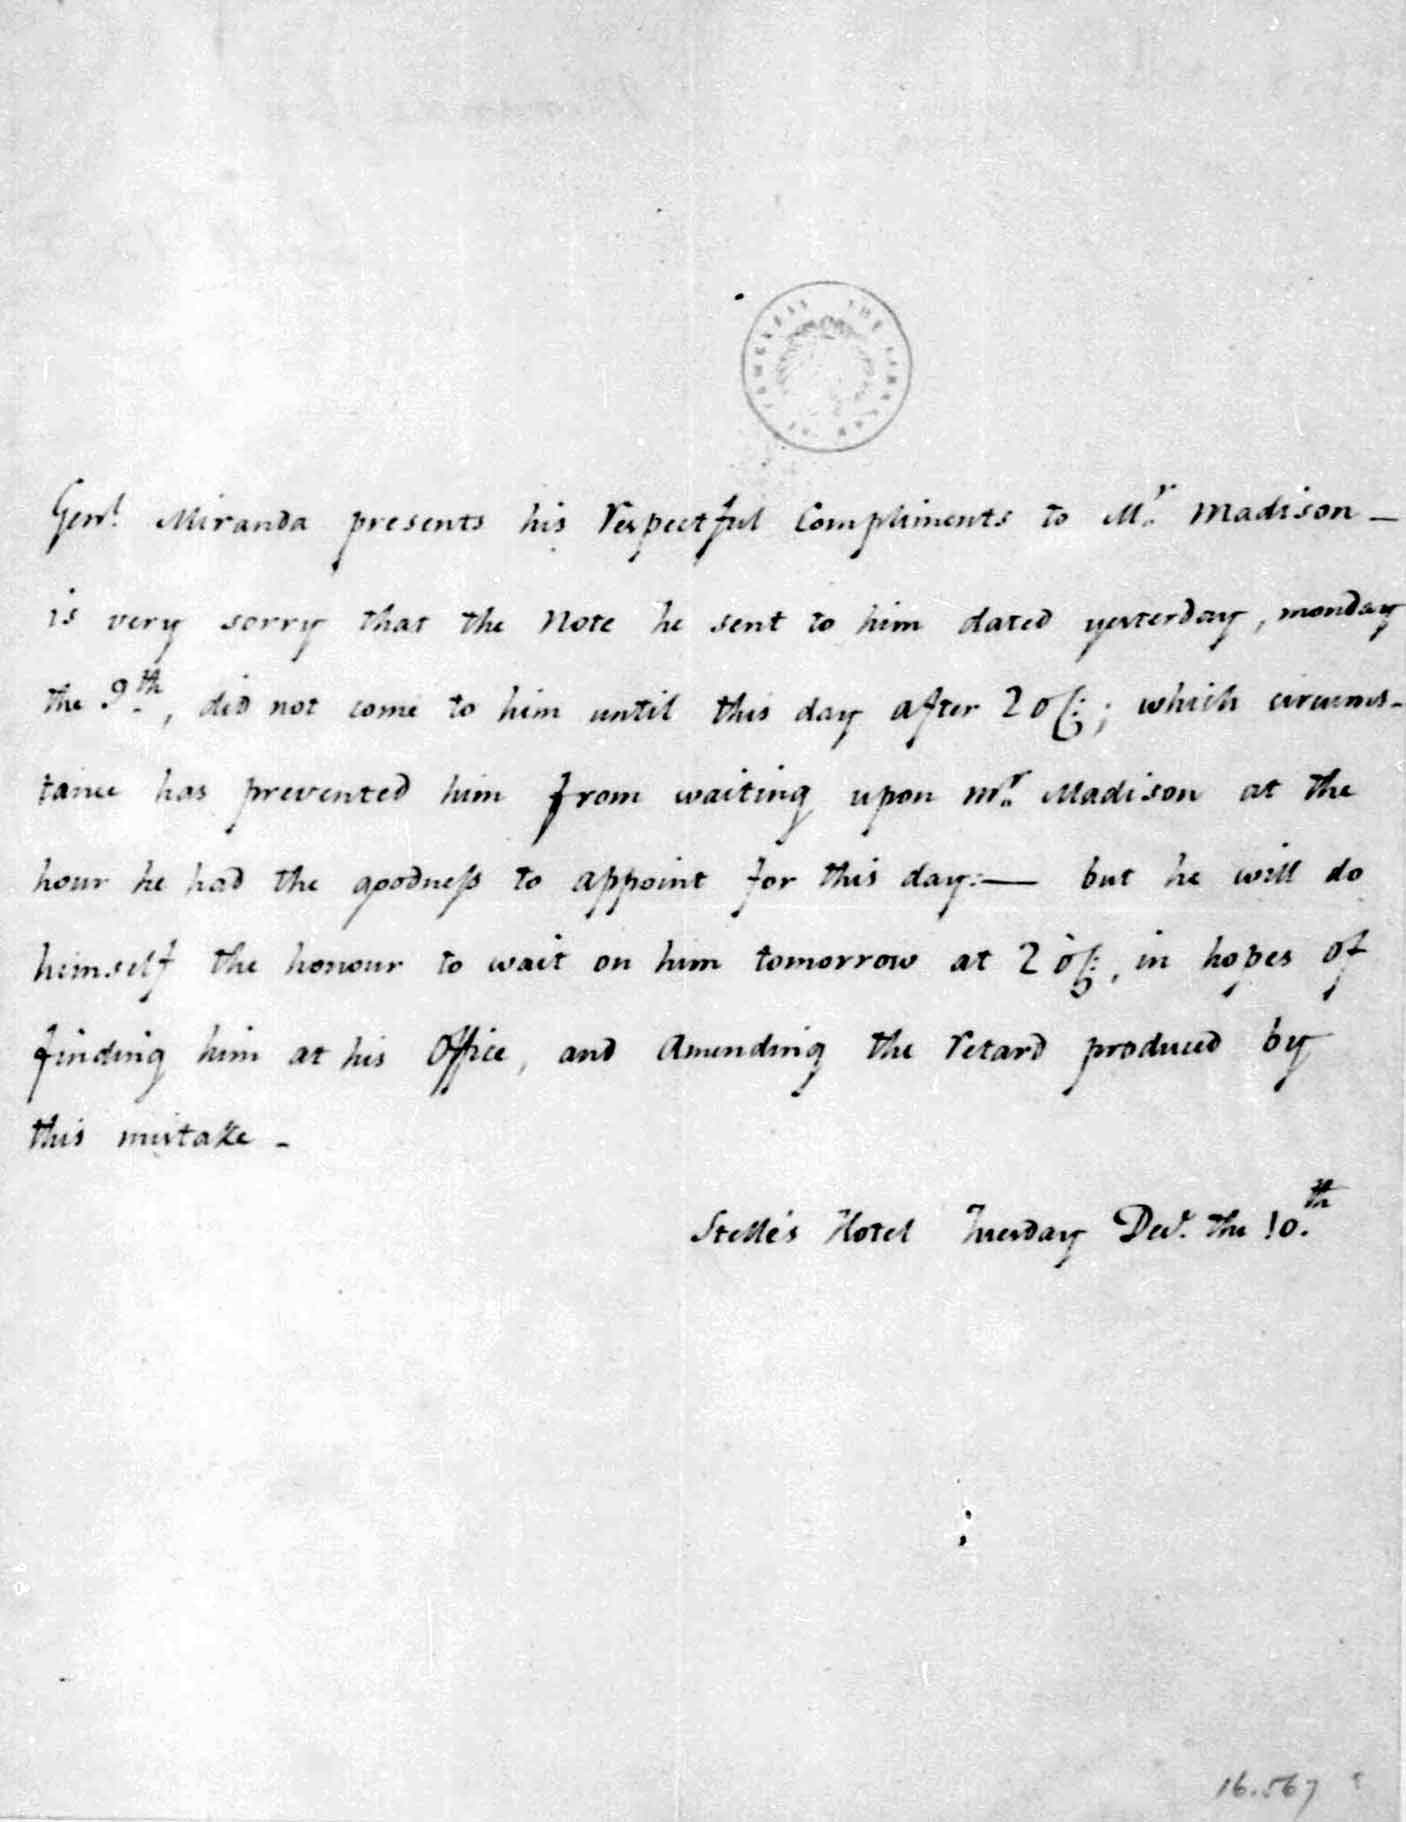 THE LIBRARY OF CONGRESS
Genl. Miranda presents his respectful Compliments to Mr. Madison —
is very sorry that the Note he sent to him dated yesterday, monday
the 9th., did not come to him until this day after 2 o/C; which circums-
tance has prevented him from waiting upon mr. Madison at the
hour he had the goodness to appoint for this day:— but he will do
himself the honour to wait on him tomorrow at 2 o/C, in hopes of
finding him at his Office, and Amending the retard produced by
this mistake —
Stelle's Hotel Tuesday Decr. the 10.th
16.567